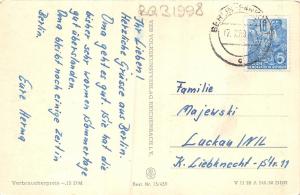 RQ31998
Ihr Lieben!
Herzliche Grüsse aus Berlin.
Oma geht es gut. Sie hat die
bisher sehr warmen Sommertage
gut überstanden.
Oma bleibt noch einige Zeit in
Berlin.
Eure Herma
VEB VOLKSKUNSTVERLAG REICHENBACH i. V.
BERLIN
17.
Familie
Majewski
Luckau / N/L
K. Liebknecht-Str. 11
Verbraucherpreis –,15 DM
Best. Nr. 15/459